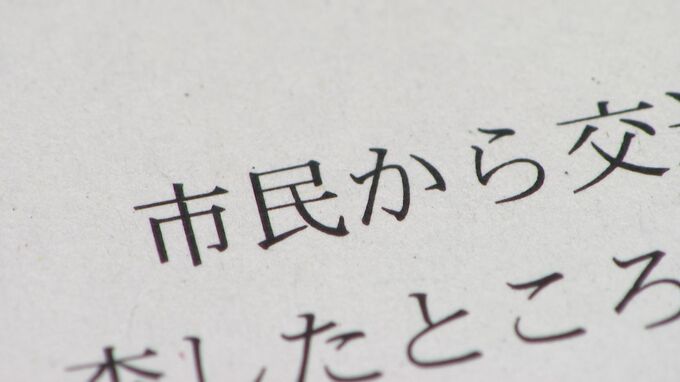 市民から交
したところ